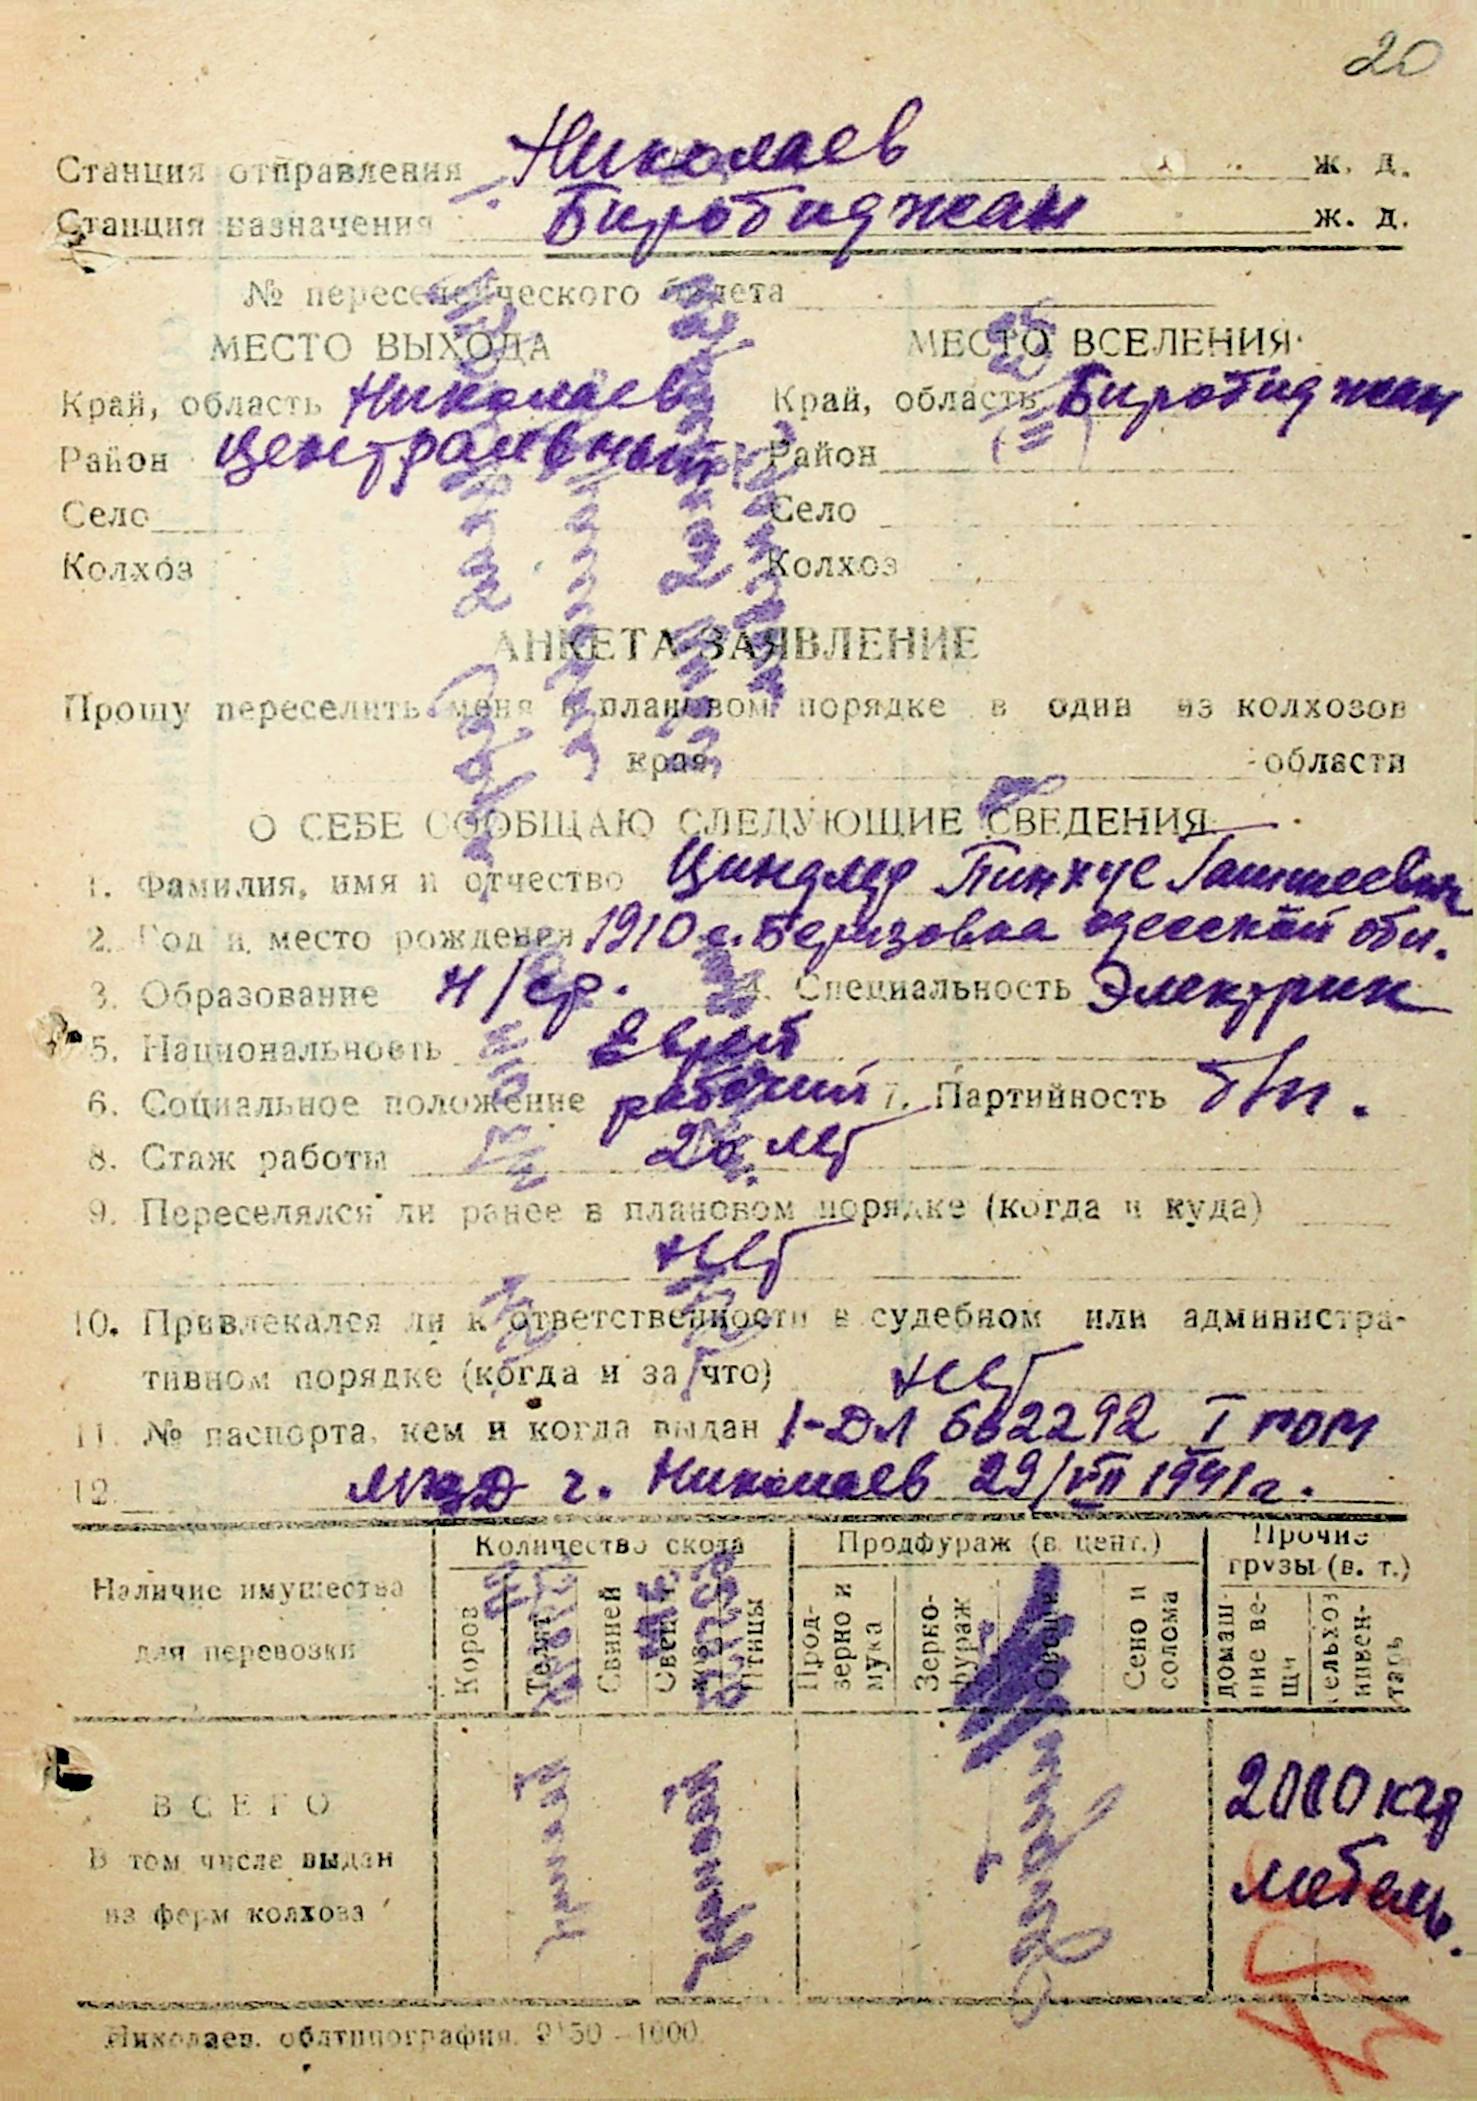 20
Станция отправления Николаев ж. д.
Станция назначения Биробиджан ж. д.
№ переселенческого билета
МЕСТО ВЫХОДА МЕСТО ВСЕЛЕНИЯ
Край, область Николаев Край, область Биробиджан
Район Центральный Район
Село Село
Колхоз Колхоз
АНКЕТА-ЗАЯВЛЕНИЕ
Прошу переселить меня в плановом порядке в один из колхозов
края области
О СЕБЕ СООБЩАЮ СЛЕДУЮЩИЕ СВЕДЕНИЯ
1. Фамилия, имя и отчество Пинхус
2. Год и место рождения 1910 с. Березовка Одесской обл.
3. Образование н/ср. 4. Специальность Электрик
5. Национальность Еврей
6. Социальное положение рабочий 7. Партийность б/п.
8. Стаж работы 20 лет
9. Переселялся ли ранее в плановом порядке (когда и куда)
нет
10. Привлекался ли к ответственности в судебном или администра-
тивном порядке (когда и за что) нет
11. № паспорта, кем и когда выдан 1-ДЛ 662292 I гом
12. г. Николаев 29/VII 1941 г.
Наличие имущества для перевозки
Количество скота Продфураж (в цент.) Прочие грузы (в. т.)
Коров Телят Свиней Овец и коз Птицы Прод-зерно и мука Зерно-фураж Овощи Сено и солома домаш-ние ве-щи сельхоз инвен-тарь
ВСЕГО 2000 кгр
В том числе выдан
из ферм колхоза мебель.
Николаев. облтипография. 2150—1000